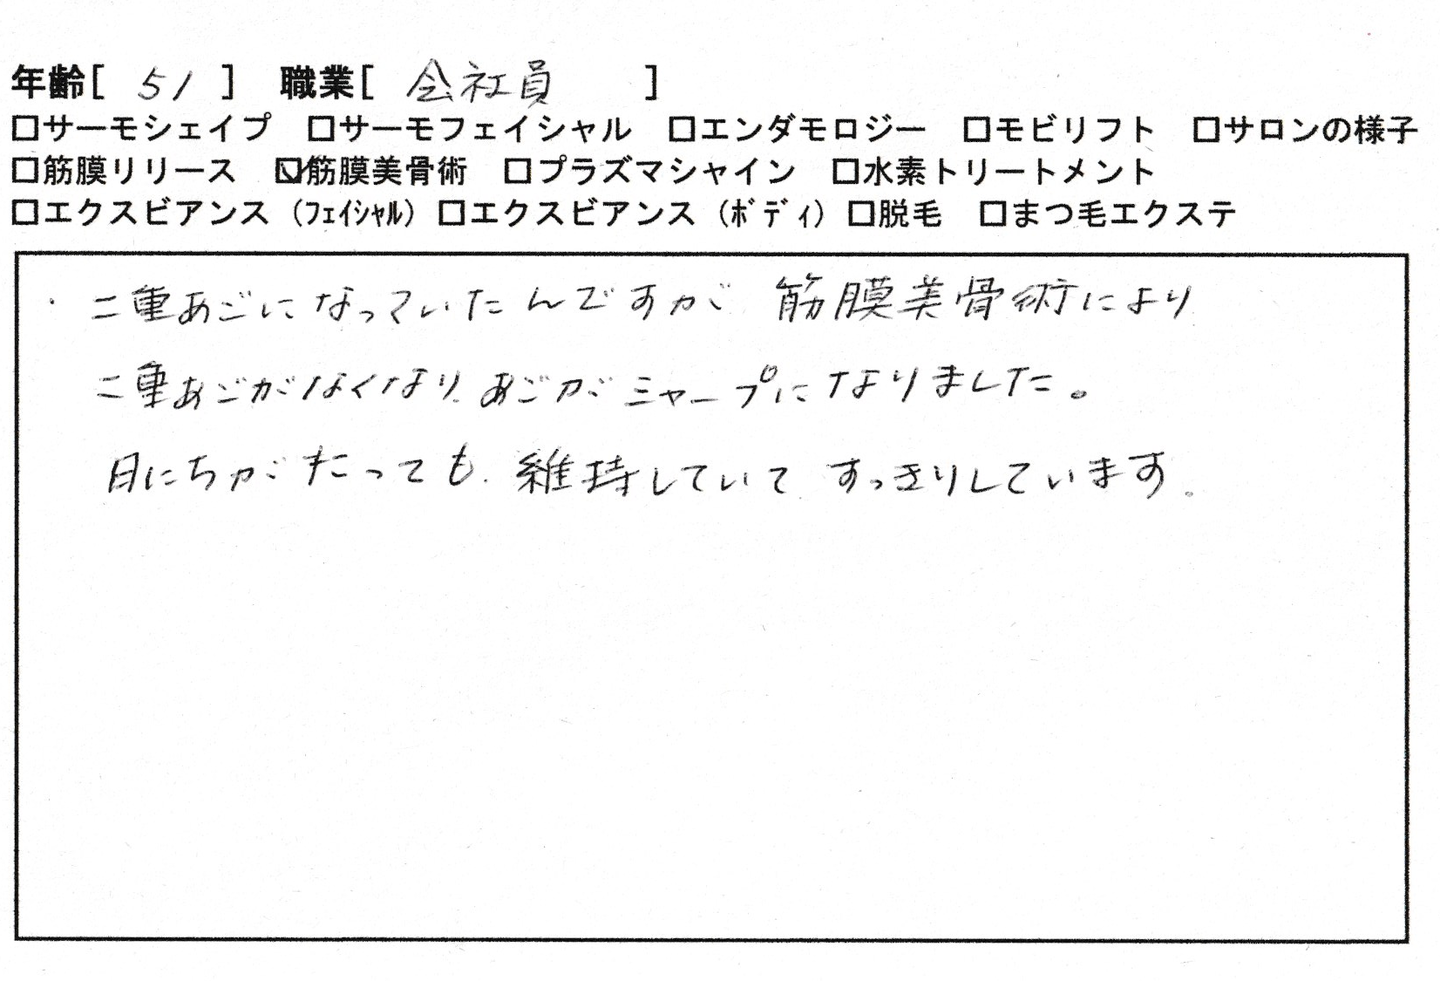 年齢[ 51 ] 職業[ 会社員 ]
□サーモシェイプ □サーモフェイシャル □エンダモロジー □モビリフト □サロンの様子
□筋膜リリース ☑筋膜美骨術 □プラズマシャイン □水素トリートメント
□エクスビアンス（ﾌｪｲｼｬﾙ）□エクスビアンス（ﾎﾞﾃﾞｨ）□脱毛 □まつ毛エクステ
・二重あごになっていたんですが 筋膜美骨術により
二重あごがなくなり、あごがシャープになりました。
日にちがたっても、維持していて すっきりしています。